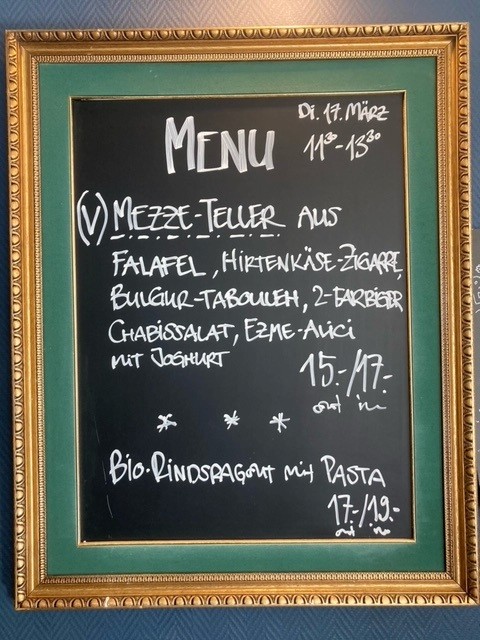 Di. 17. März
11³⁰-13³⁰
MENU
(V) MEZZE-TELLER AUS
FALAFEL, HIRTENKÄSE-ZIGARRE,
BULGUR-TABOULEH, 2-FARBIGER
CHABISSALAT, EZME-ALICI
MIT JOGHURT
15.-/17.-
out in
* * *
BIO-RINDSRAGOUT MIT PASTA
17.-/19.-
out in